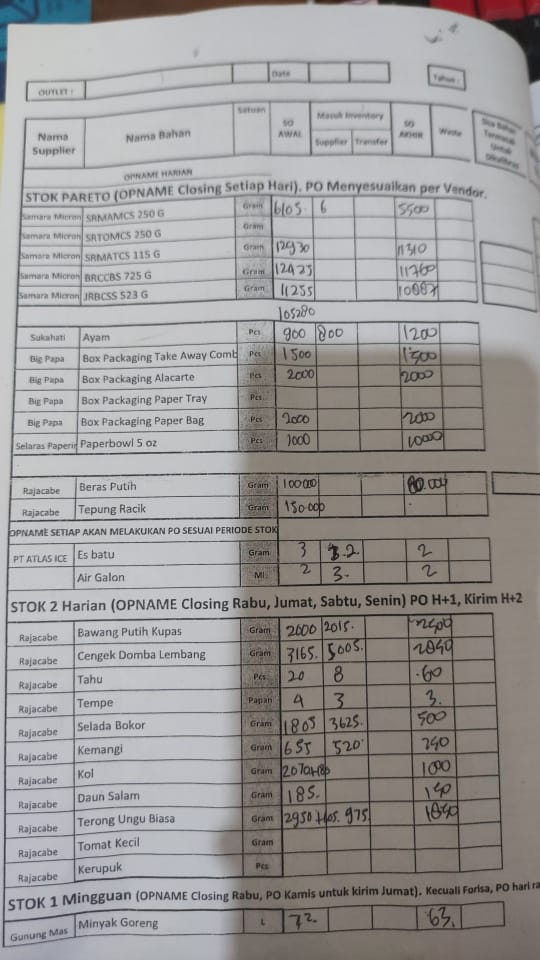 OUTLET : Date Tahun :
Nama Supplier Nama Bahan Satuan SO AWAL Masuk Inventory Supplier Transfer SO AKHIR Waste
OPNAME HARIAN
STOK PARETO (OPNAME Closing Setiap Hari). PO Menyesuaikan per Vendor.
Samara Micron SRMAMCS 250 G Gram 6105 6 5500
Samara Micron SRTOMCS 250 G Gram
Samara Micron SRMATCS 115 G Gram 12930 11310
Samara Micron BRCCBS 725 G Gram 12425 11760
Samara Micron JRBCSS 523 G Gram 11255
105280
Sukahati Ayam Pcs 900 800 1200
Big Papa Box Packaging Take Away Comb Pcs 1500 1500
Big Papa Box Packaging Alacarte Pcs 2000 2000
Big Papa Box Packaging Paper Tray Pcs
Big Papa Box Packaging Paper Bag Pcs 2000 2000
Selaras Paperin Paperbowl 5 oz Pcs 1000
Rajacabe Beras Putih Gram 100000
Rajacabe Tepung Racik Gram 150.000
OPNAME SETIAP AKAN MELAKUKAN PO SESUAI PERIODE STOK
PT ATLAS ICE Es batu Gram 3 2
Air Galon Ml 2 3. 2
STOK 2 Harian (OPNAME Closing Rabu, Jumat, Sabtu, Senin) PO H+1, Kirim H+2
Rajacabe Bawang Putih Kupas Gram 2000 2015.
Rajacabe Cengek Domba Lembang Gram 3165. 5005.
Rajacabe Tahu Pcs 20 8 60
Rajacabe Tempe Papan 4 3 3.
Rajacabe Selada Bokor Gram 1805 3625. 500
Rajacabe Kemangi Gram 655 520
Rajacabe Kol Gram 1000
Rajacabe Daun Salam Gram 185.
Rajacabe Terong Ungu Biasa Gram 2950 975
Rajacabe Tomat Kecil Gram
Rajacabe Kerupuk Pcs
STOK 1 Mingguan (OPNAME Closing Rabu, PO Kamis untuk kirim Jumat). Kecuali Forisa, PO hari ra
Gunung Mas Minyak Goreng L 72. 63.